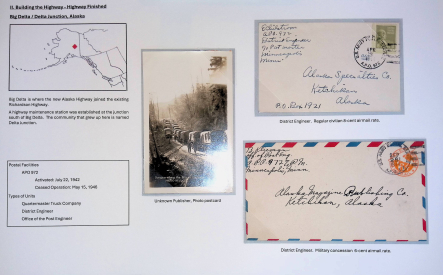 II. Building the Highway - Highway Finished
Big Delta / Delta Junction, Alaska
Big Delta is where the new Alaska Highway joined the existing
Richardson Highway.
A highway maintenance station was established at the junction
south of Big Delta. The community that grew up here is named
Delta Junction.
Postal Facilities
APO 972
Activated: July 22, 1942
Ceased Operation: May 15, 1946
Types of Units
Quartermaster Truck Company
District Engineer
Office of the Post Engineer
Unknown Publisher, Photo postcard
A.P.O. 972
District Engineer
% Postmaster
Minneapolis
Minn
Alaska Specialties Co.
Ketchikan
Alaska
P.O. Box 1921
District Engineer. Regular civilian 8 cent airmail rate.
Minneapolis, Minn
Alaska Magazine Publishing Co.
Ketchikan, Alaska
District Engineer. Military concession 6 cent airmail rate.